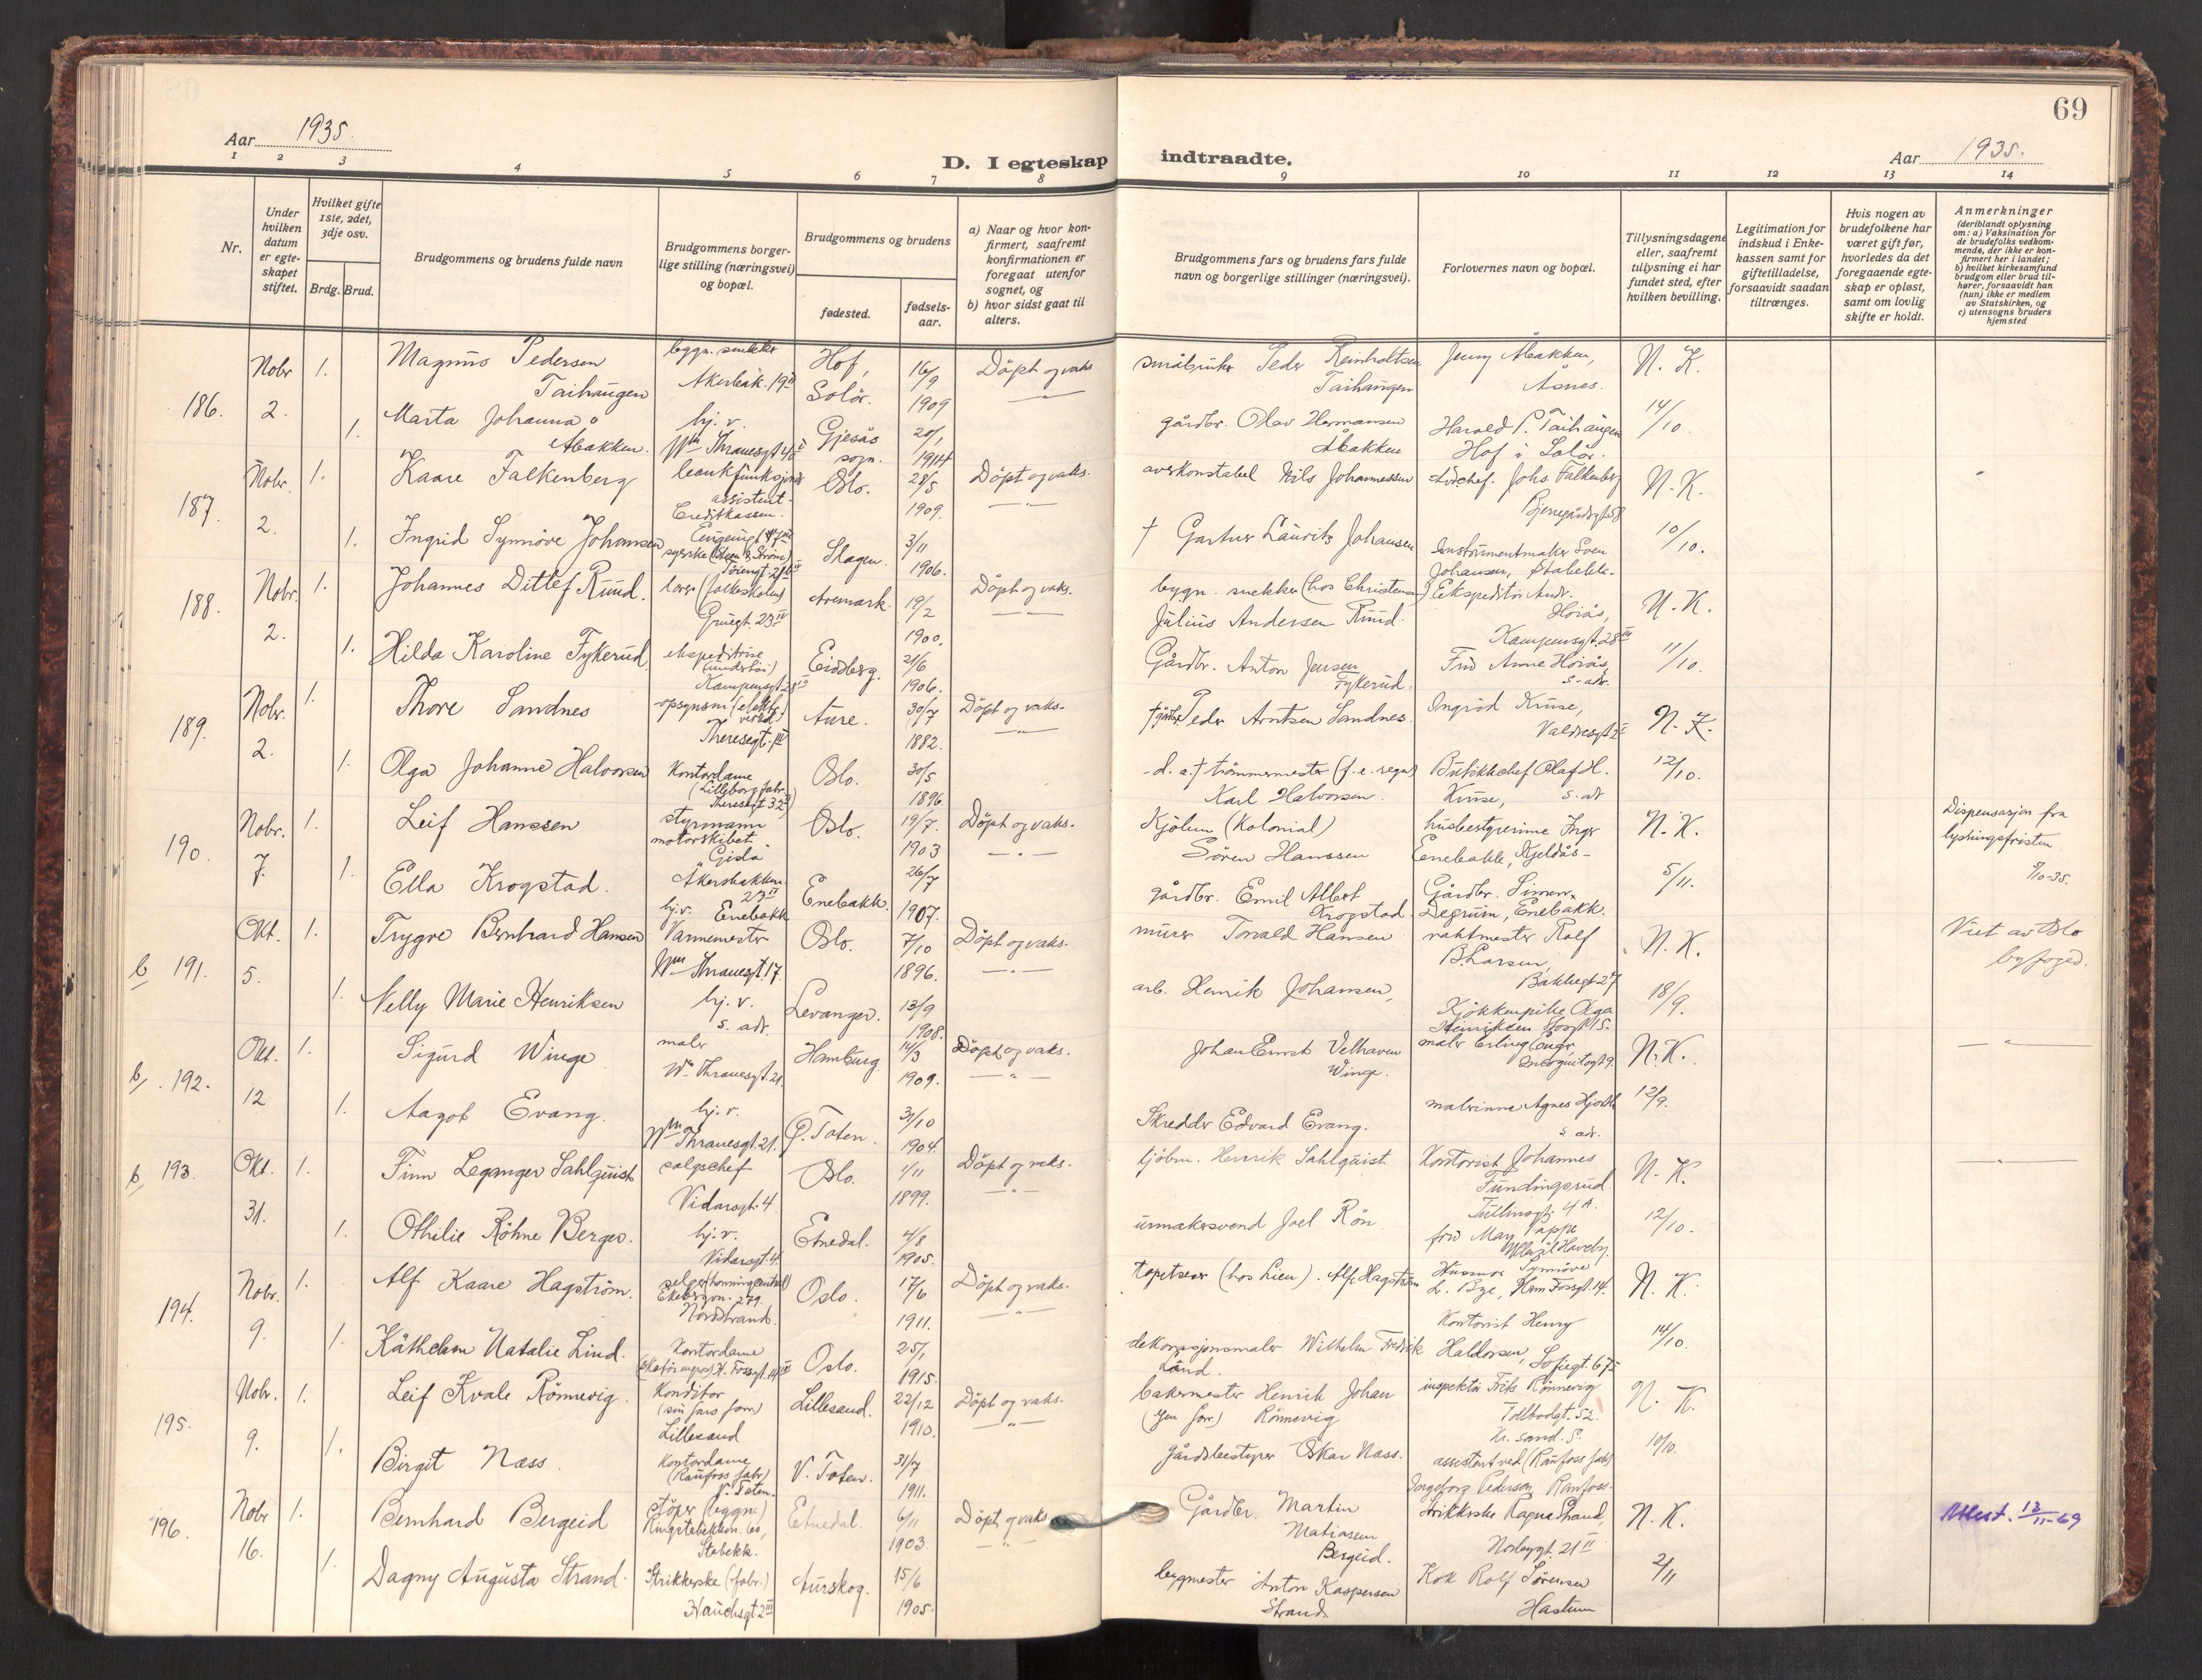 69
Aar 1935.
D. I egteskap indtraadte.
Aar 1935.
1 2 3 4 5 6 7 8 9 10 11 12 13 14
Nr.
Under hvilken datum er egteskapet stiftet.
Hvilket gifte 1ste, 2det, 3dje osv.
Brdg. Brud.
Brudgommens og brudens fulde navn
Brudgommens borgerlige stilling (næringsvei) og bopæl.
Brudgommens og brudens
fødested.
fødselsaar.
a) Naar og hvor konfirmert, saafremt konfirmationen er foregaat utenfor sognet, og
b) hvor sidst gaat til alters.
Brudgommens fars og brudens fars fulde navn og borgerlige stillinger (næringsvei).
Forlovernes navn og bopæl.
Tillysningsdagene eller, saafremt tillysning ei har fundet sted, efter hvilken bevilling.
Legitimation for indskud i Enkekassen samt for giftetilladelse, forsaavidt saadan tiltrænges.
Hvis nogen av brudefolkene har været gift før, hvorledes da det foregaaende egteskap er opløst, samt om lovlig skifte er holdt.
Anmerkninger
(deriblandt oplysning om: a) Vaksination for de brudefolks vedkommende, der ikke er konfirmert her i landet;
b) hvilket kirkesamfund brudgom eller brud tilhører, forsaavidt han (hun) ikke er medlem av Statskirken, og
c) utensogns bruders hjemsted
186. Nobr 2. 1. Magnus Pedersen Taihaugen bygn. snekker Akersbak. 19 II Hof, Solör. 16/9 1909 Döpt og vaks småbruker Peder Reinholtsen Taihaugen Jenny Åbakken, Åsnes. N. K.
1. Marta Johanna Åbakken. hj. v. Wm Thranesgt 42 Gjesås sogn. 20/1 1914 gårdbr. Olav Hermansen Åbakken Harald P. Taihaugen Hof i Solör. 14/10
187. Nobr. 2. 1. Kaare Falkenberg bankfunksjonær assistent Creditkassen. Oslo. 28/5 1909. Döpt og vaks. overkonstabel Nils Johannessen Johs Falkenberg N. K.
1. Ingrid Synnöve Johansen syerske (Steen & Ström) Skagen. 3/11 1906. † Gartner Laurits Johansen Instrumentmaker Sven Johansen, Stabekk. 10/10.
188. Nobr. 2. 1. Johannes Ditlef Ruud. lærer (folkeskolen) Gruegt. 23 IV Aremark. 19/2 1900. Döpt og vaks. bygn. snekker (hos Christensen) Julius Andersen Ruud. Ekspeditör Andr. Hoiås, Kampensgt. 28 III N. K.
1. Hilda Karoline Fykerud. ekspeditrise Kampensgt 28 Eidsberg. 21/6 1906. Gårdbr. Anton Jensen Fykerud. Fru Anne Hoiås, s. adr. 11/10.
189. Nobr. 2. 1. Thore Sandnes opsynsm (elektr. verk) Theresegt. Aure. 30/7 1882. Döpt og vaks. † gårdbr. Peder Arntsen Sandnes. Ingrid Kruse, Valdresgt 2 N. K.
1. Olga Johanne Halvorsen Kontordame (Lilleborg fabr. Theresegt 32) Oslo. 30/5 1896. d. a. † tömmermester Karl Halvorsen. Butikkchef Olaf H. Kruse, s. adr 12/10.
190. Nobr. 7. 1. Leif Hanssen styrmann motorskibet "Gisla" Akersbakken 23 II Oslo. 19/7. 1903 Döpt og vaks. Kjöbm (Kolonial) Sören Hanssen husbestyrerinne Inger Enebakk, Kjeldås N. K. Dispensasjon fra lysningsfristen 9/10-35.
1. Ella Krogstad. hj. v. Enebakk Enebakk. 26/7 1907. gårdbr. Emil Albert Krogstad. Gårdbr. Simen Degrum, Enebakk. 5/11.
b 191. Okt. 5. 1. Trygve Bernhard Hansen Varmemester Wm Thranesgt. 17. Oslo. 7/10 1896. Döpt og vaks. murer Torvald Hansen vaktmester Rolf B. Larsen, Bakkegt 27 N. K. Viet av Oslo byfoged.
1. Nelly Marie Henriksen hj. v. s. adr. Levanger. 13/9 1908. arb. Henrik Johansen, Kjökkenpike Olga Henriksen 18/9.
b/ 192. Okt. 12 1. Sigurd Winge maler Wm Thranesgt. 21. Hamburg 14/3 1909. Döpt og vaks. Johan Ernst Velhaven Winge. maler Erling Enger, N. K. — " —
1. Aagot Evang. hj. v. Wm Thranesgt. 21. Ö. Toten. 31/10 1904. Skredder Edvard Evang. malerinne Agnes Hjorth s adr. 12/9.
b/ 193. Okt. 31. 1. Finn Leganger Sahlquist salgschef Vidarsgt. 4 Oslo. 1/11 1899. Döpt og vaks. kjöbm. Henrik Sahlquist Kontorist Johannes Fundingsrud Tullinsgt. 4 A. N. K. — " —
1. Othilie Röhne Berger. hj. v. Vidarsgt. 4. Etnedal. 4/8 1905. urmakersvend Joel Rön fru Mary Pappe, Ullevål Haveby. 12/10.
194. Nobr. 9. 1. Alf Kaare Hagström. selger Ekebergvn. 279 Nordstrand. Oslo. 17/6 1911. Döpt og vaks. Tapetserer (hos Lien). Alf Hagström Husmor Synnöve L. Bye, Hm Fossgt. 14. N. K.
1. Käthchen Natalie Lind. Kontordame Oslo. 25/1 1915. dekorasjonsmaler Wilhelm Fredrik Lind. Kontorist Henry Haldorsen, Sofiegt. 67 14/10.
195. Nobr. 9. 1. Leif Kvale Rönnevig Konditor (sin fars forr.) Lillesand Lillesand. 22/12 1910. Döpt og vaks. bakermester Henrik Johan (egen forr) Rönnevig inspektör Frits Rönnevig Tollbodgt. 52. Kr. sand. S. N. K.
1. Birgit Næss. Kontordame (Raufoss fabr.) V. Toten. V. Toten. 31/7 1911. gårdsbestyrer Oskar Næss. assistent ved (Raufoss fabr) Ingeborg Pedersen Raufoss. 10/10.
196. Nobr 16. 1. Bernhard Bergeid stöper (bygn.) Ringstabekkvn. 60, Stabekk. Etnedal. 6/11 1903. Döpt og vaks Gårdbr. Martin Matiassen Bergeid. strikkerske Ragna Strand, Norbygt. 21 II N. K. Attest. 13/11-69
1. Dagny Augusta Strand. Strikkerske (fabr.) Hauchsgt 2 III Aurskog. 15/6 1905. bygmester Anton Kaspersen Strand. Kok Rolf Sörensen Haslum 2/11